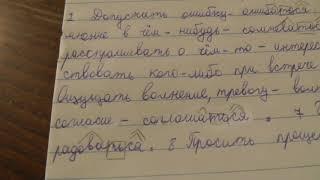 1 Допускать ошибку - ошибаться
в чём-нибудь - сомневаться
расспрашивать о чём-то - интерес
ствовать кого-либо при встрече
Ощущать волнение, тревогу - вол
согласие - соглашаться. 7
радоваться. 8 Просить проще